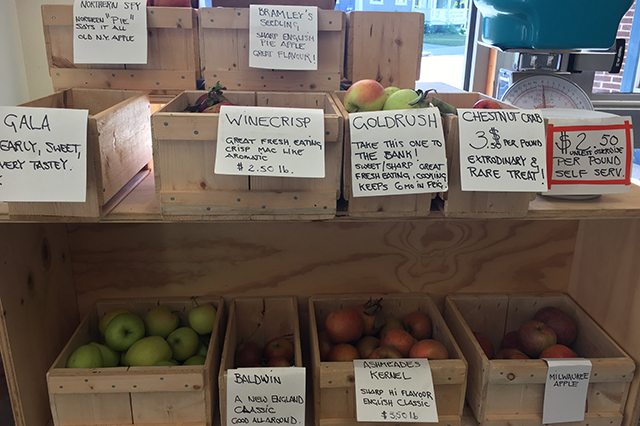 NORTHERN SPY
NORTHERN "PIE"
SAYS IT ALL
OLD N.Y. APPLE
BRAMLEY'S
SEEDLING
SHARP ENGLISH
PIE APPLE
GREAT FLAVOUR!
GALA
EARLY, SWEET,
VERY TASTEY.
WINECRISP
GREAT FRESH EATING,
CRISP MAC LIKE
AROMATIC
$2.50 lb.
GOLDRUSH
TAKE THIS ONE TO
THE BANK!
SWEET/SHARP GREAT
FRESH EATING, COOKING
KEEPS 6 MO IN FRIG.
CHESTNUT CRAB
3.50 PER POUND
EXTRODINARY &
RARE TREAT!
$2.50
UNLESS OTHERWISE
PER POUND
SELF SERV.
BALDWIN
A NEW ENGLAND
CLASSIC
GOOD ALL AROUND.
ASHMEADES
KERNEL
SHARP HI FLAVOR
ENGLISH CLASSIC
$3.50 lb
MILWAUKEE
APPLE